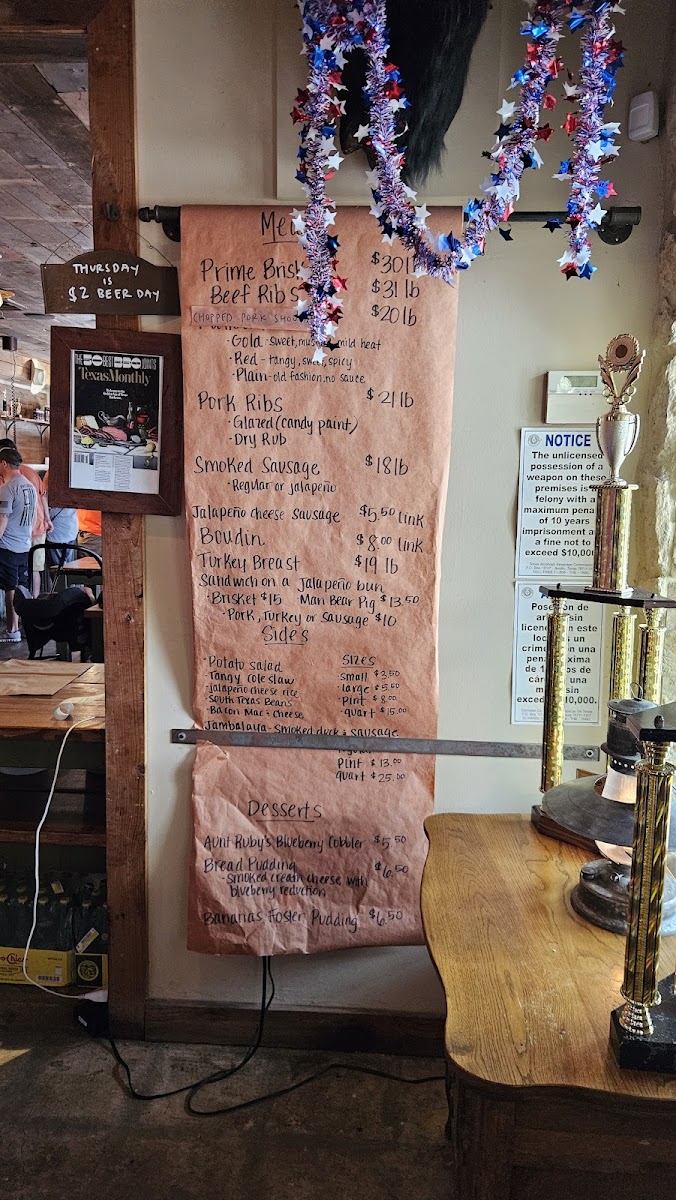 THURSDAY
IS
$2 BEER DAY
THE 50 BEST BBQ JOINTS
TexasMonthly
Prime Brisk $30 lb
Beef Ribs $31 lb
CHOPPED PORK SHOU $20 lb
· Gold - sweet, mild heat
· Red - tangy, sweet, spicy
· Plain - old fashion, no sauce
Pork Ribs $21 lb
· Glazed (candy paint)
· Dry Rub
Smoked Sausage $18 lb
· Regular or jalapeño
Jalapeño cheese sausage $5.50 link
Boudin $8.00 link
Turkey Breast $19 lb
Sandwich on a jalapeño bun
· Brisket $15 Man Bear Pig $13.50
· Pork, Turkey or Sausage $10
Sides
· Potato salad
· Tangy coleslaw
· Jalapeño cheese rice
· South Texas Beans
· Bacon Mac + cheese
SIZES
· small $3.50
· large $5.50
· Pint $8.00
· quart $15.00
Jambalaya - smoked duck & sausage
Pint $13.00
quart $25.00
Desserts
Aunt Ruby's Blueberry Cobbler $5.50
Bread Pudding $6.50
- smoked cream cheese with
blueberry reduction
Bananas Foster Pudding $6.50
NOTICE
The unlicensed
possession of a
weapon on these
premises is a
felony with a
maximum pena
of 10 years
imprisonment a
a fine not to
exceed $10,00
Posesión de
ar sin
licen en este
loc es un
crim on una
pena xima
de 1 os de
cár una
m sin
exced 10,000.